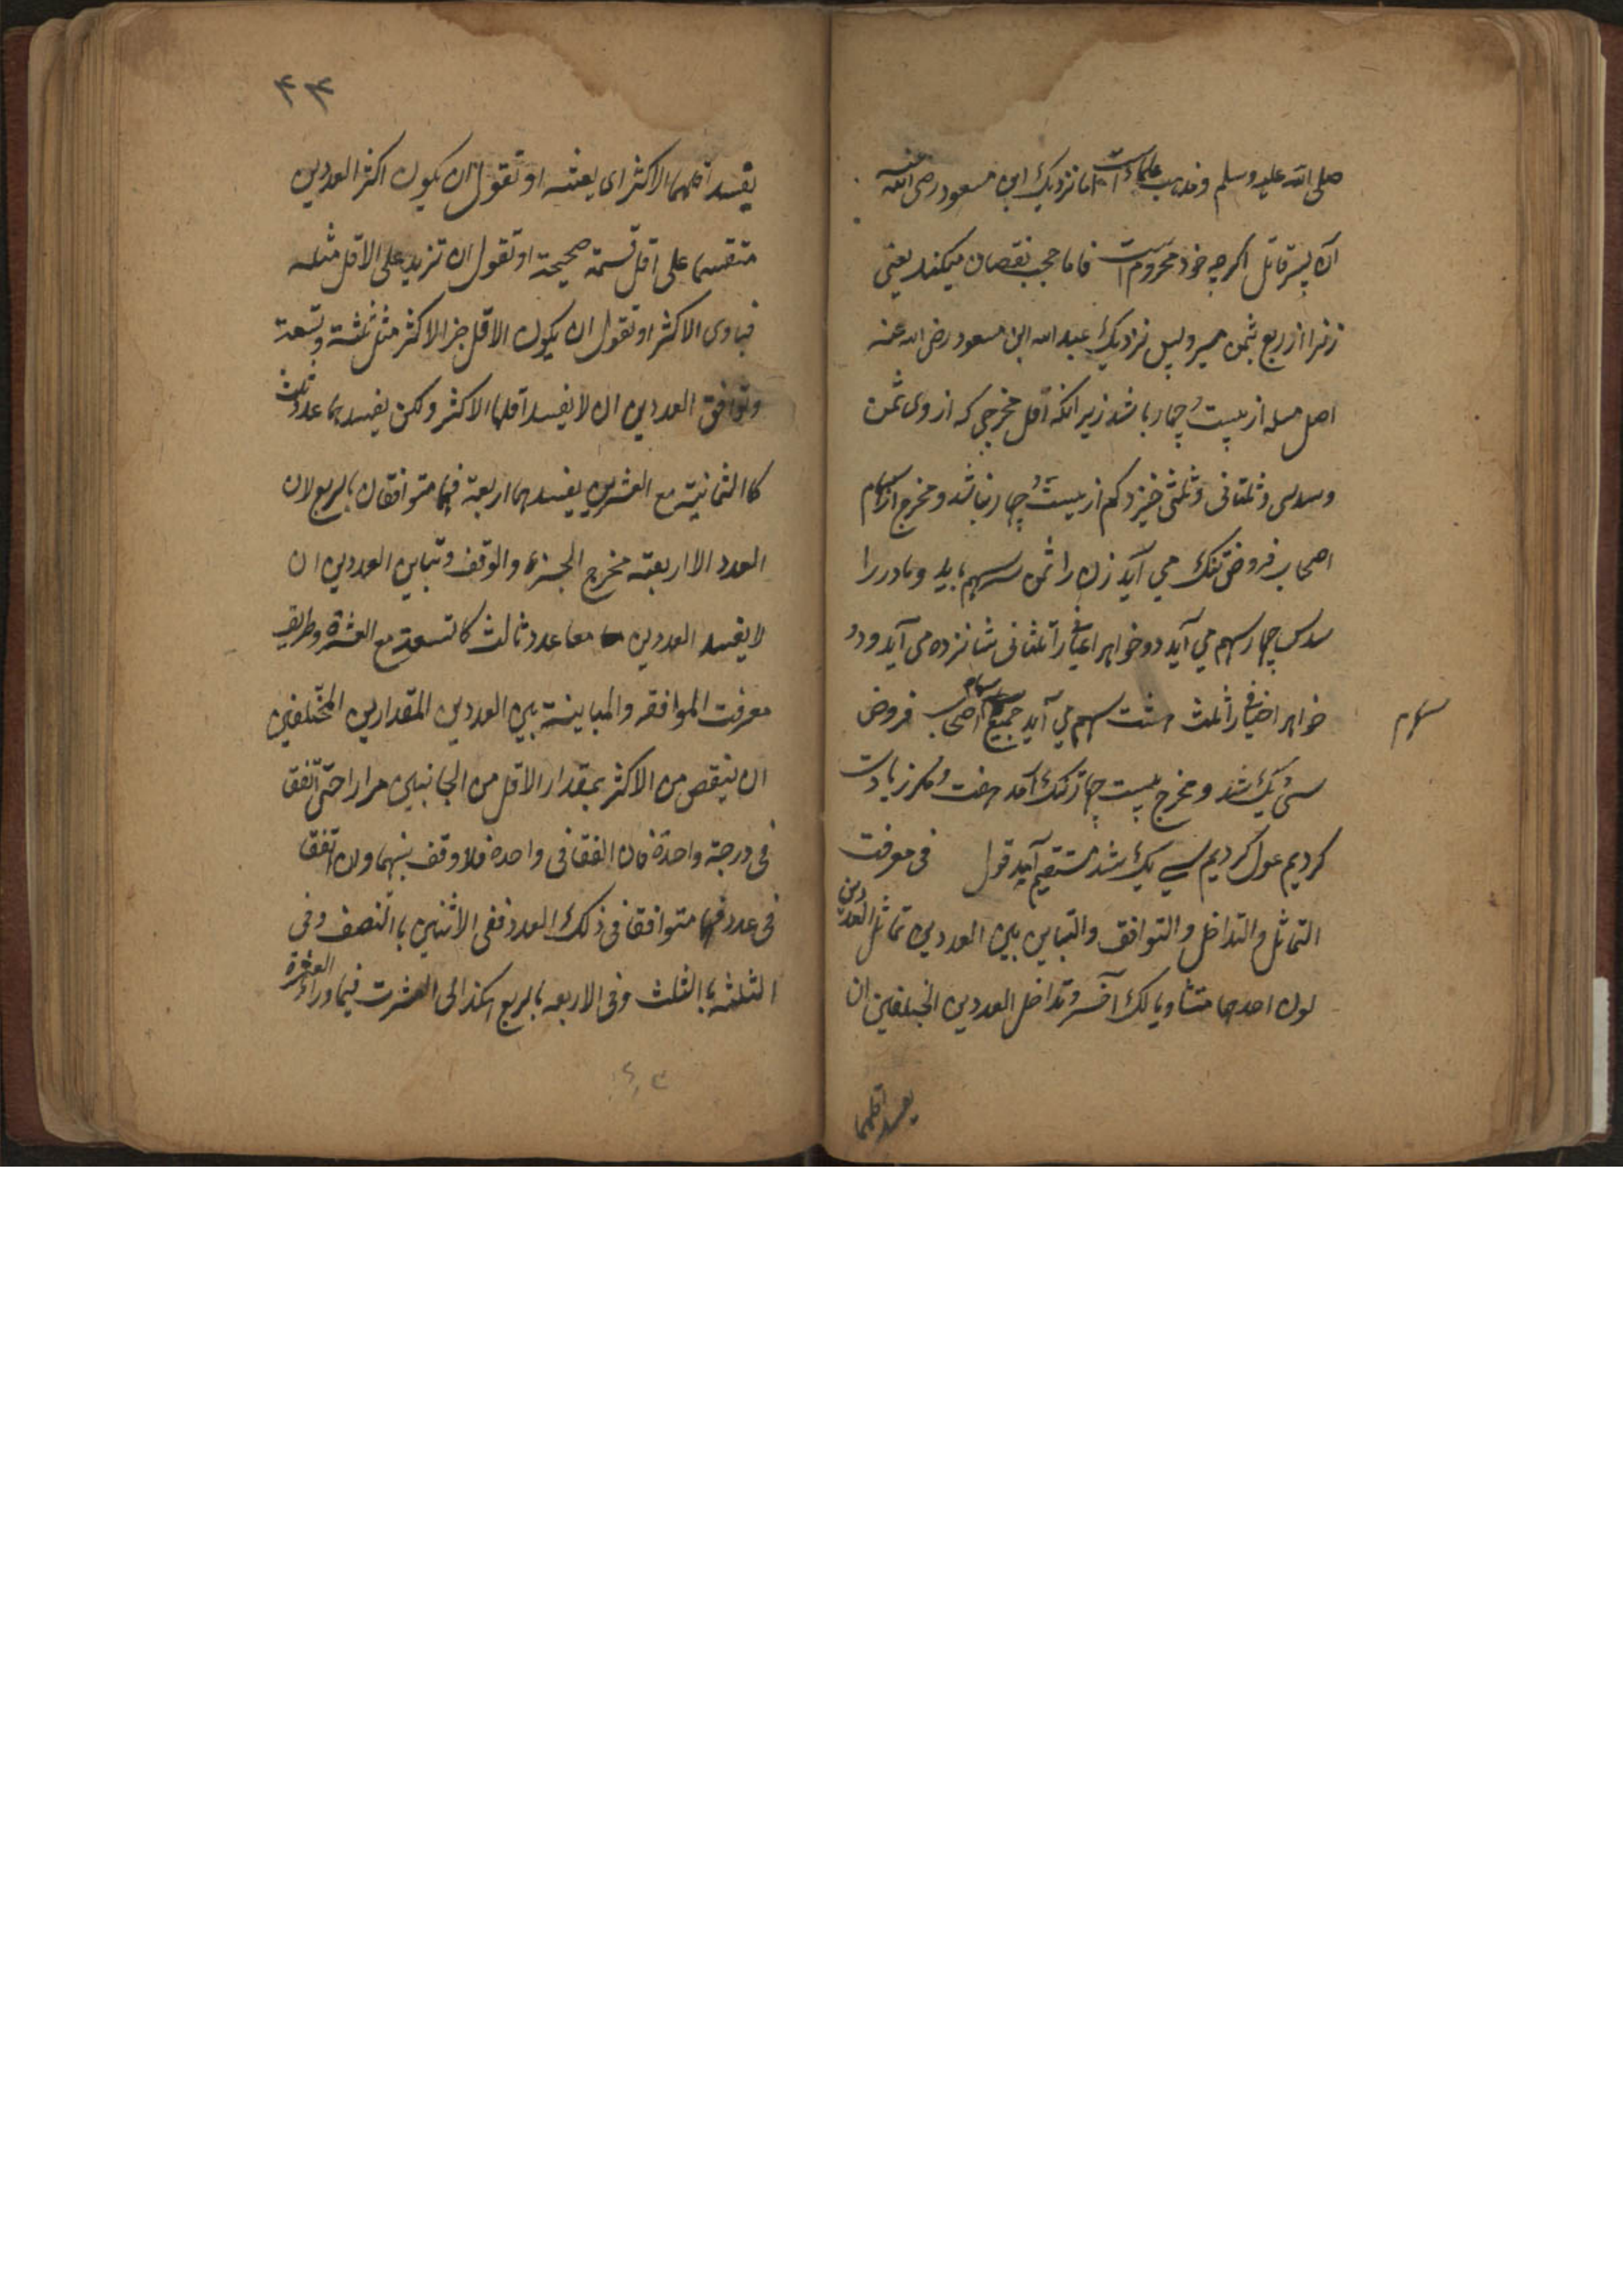 صلی الله علیه وسلم ومذهب علماء است اما نزدیک ابن مسعود رضی الله عنه
آن پسر قاتل اگرچه خود محروم است فاما حجب نقصان میکند یعنی
زنرا از ربع بثمن میبرد پس نزدیک عبد الله ابن مسعود رضی الله عنه
اصل مسله از بیست و چهار باشد زیرانکه اقل مخرجی که از وی ثمن
وسدس وثلثانی وثلثی خیزد کم از بیست و چهار نباشد ومخرج از سهام
اصحاب فروض تنگ می آید زن را ثمن سه سهم باید ومادر را
سدس چهار سهم می آید دو خواهر اعیانی را ثلثانی شانزده می آید ودو
خواهر اخیافی را ثلث هشت سهم می آید جمیع سهام اصحاب فروض
سهام
سی ویک شد ومخرج بیست چهار تنگ آمد هفت دیگر زیادت
کردیم عول کردیم سی یک شد مستقیم آید قول فی معرفت
التماثل والتداخل والتوافق والتباین بین العددین تماثل العددین
لون احدهما متساویا لک آخر وتداخل العددین المختلفین ان
یعد اقلهما
۴۴
یعد اقلهما الاکثر ای یعنیه او تقول ان یکون اکثر العددین
منقسما علی اقل قسمة صحیحة او تقول ان تزید علی الاقل مثله
فیاوی الاکثر او تقول ان یکون الاقل جزالاکثر مثل ثلثة وتسعة
وتوافق العددین ان لا یعد اقلها الاکثر ولکن یعدهما عدد ثالث
کاالثمانیة مع العشرین یعدهما اربعة فهما متوافقان بالربع لان
العدد الاربعة مخرج الجزء والوقف وتباین العددین ان
لا یعد العددین معا عدد ثالث کاتسعة مع العشرة وطریق
معرفت الموافقه والمباینة بین العددین المقدارین المختلفین
ان ینقص من الاکثر بمقدار الاقل من الجانبین مرارا حتی اتفقا
فی درجة واحدة فان اتفقا فی واحدة فلا وقف بینهما وان اتفقا
فی عدد فهما متوافقا فی ذلک العدد ففی الاثنین باالنصف وفی
الثلثه باالثلث وفی الاربعه بالربع هکذا الی العشرت فیما وراء العشرة